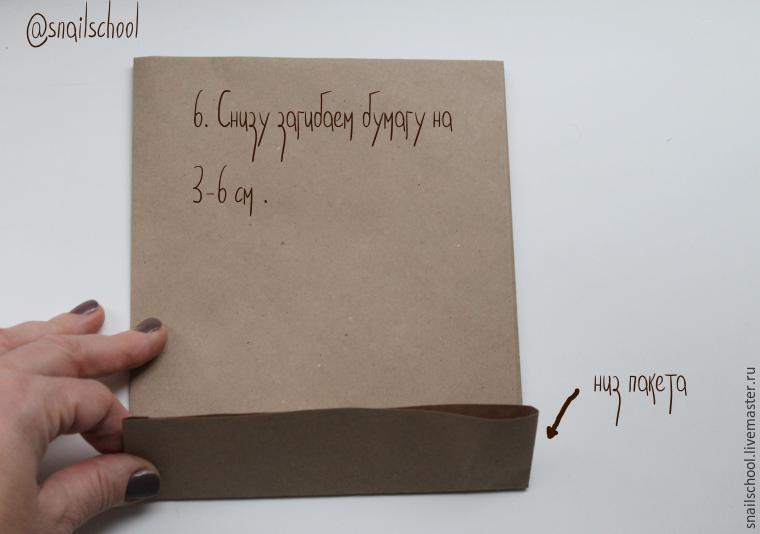 @snailschool
6. Снизу загибаем бумагу на
3-6 см .
низ пакета
snailschool.livemaster.ru